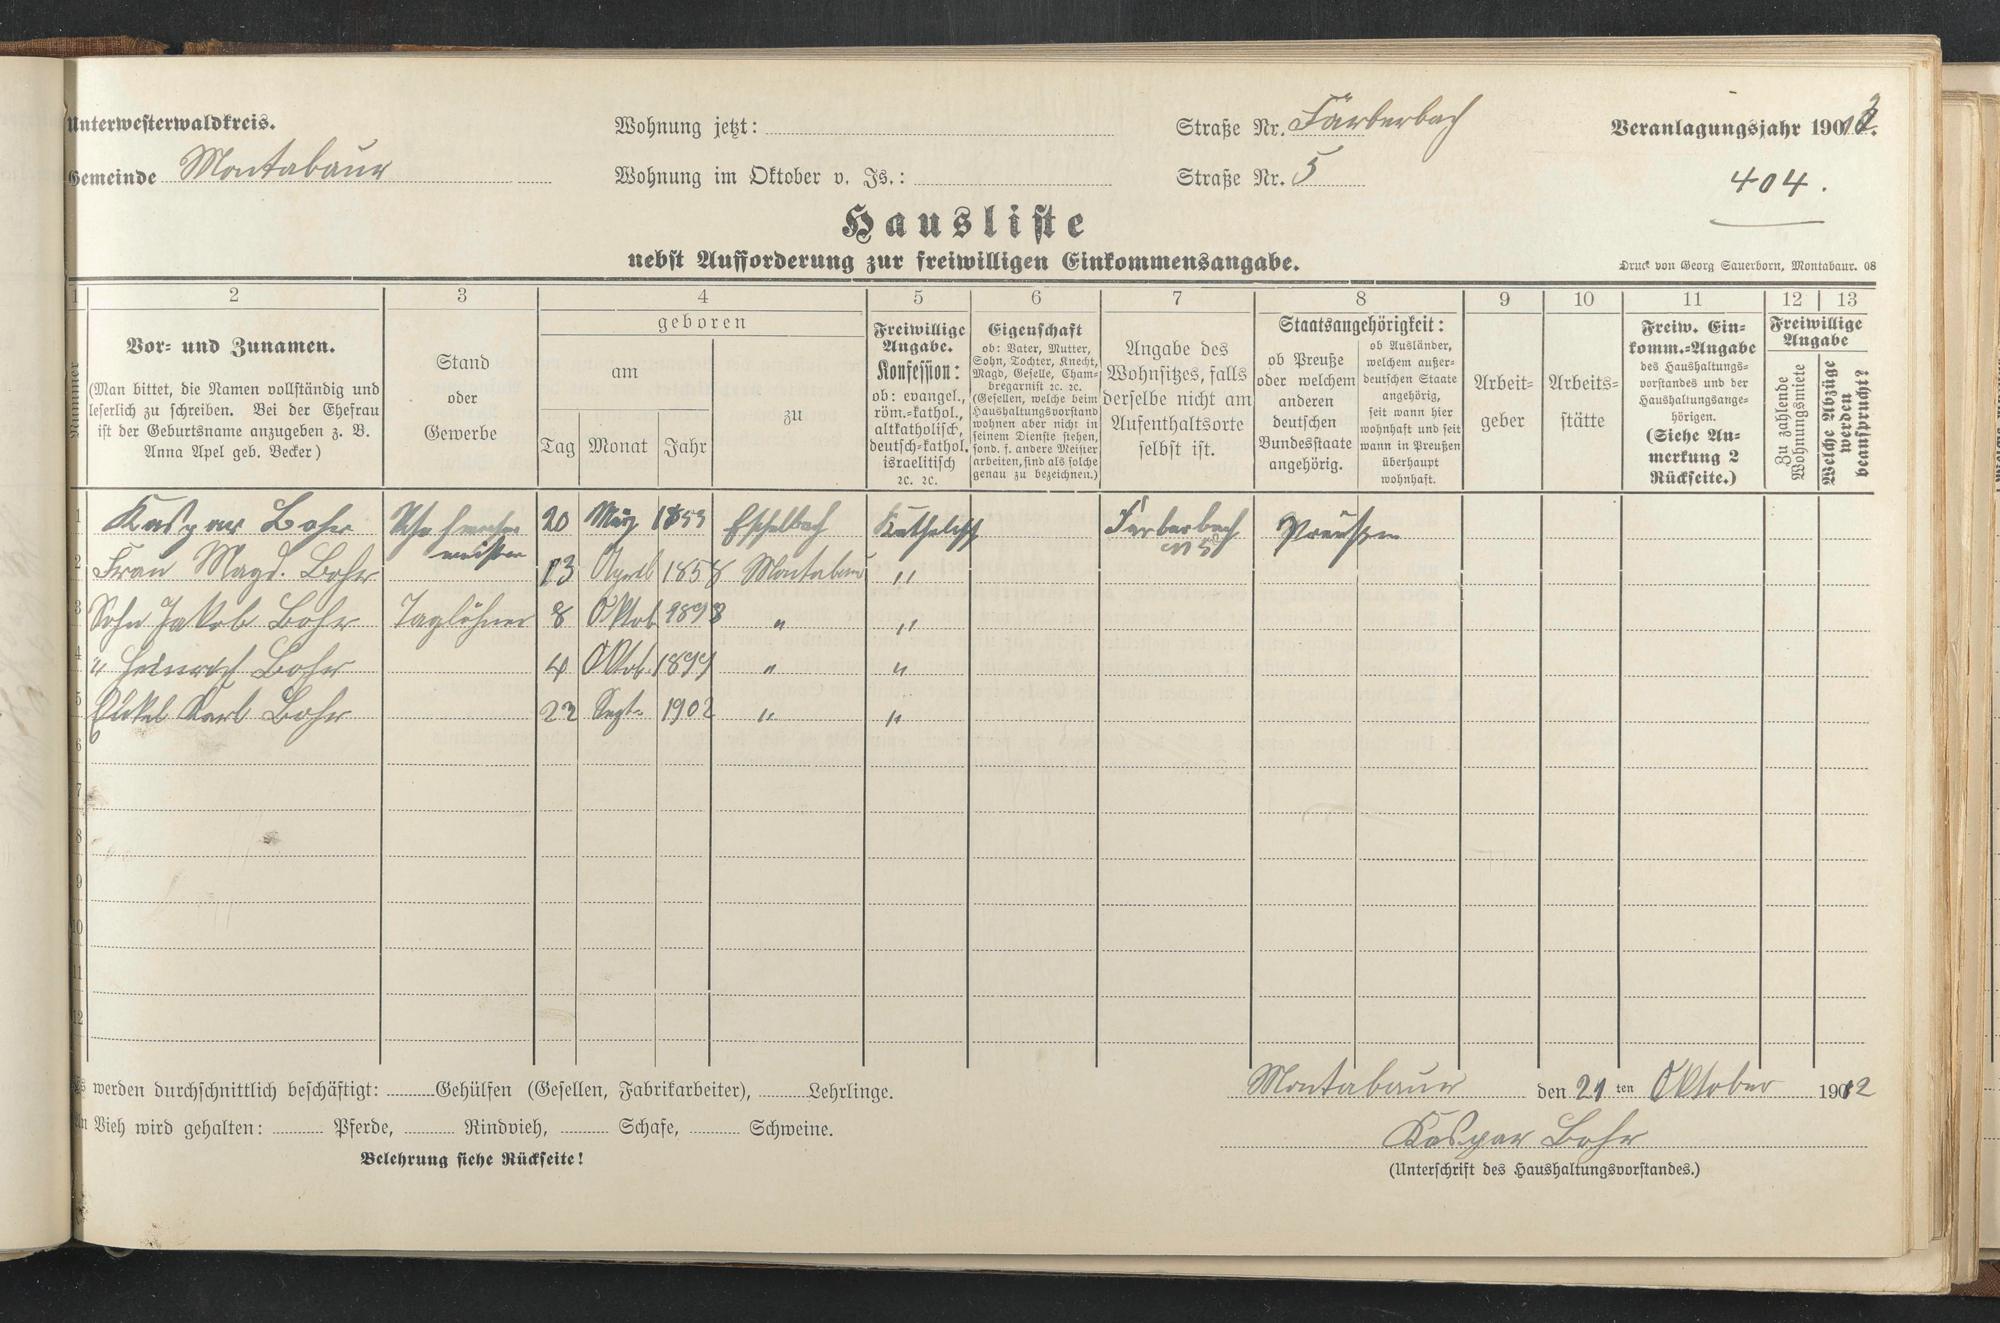 Unterwesterwaldkreis.
Gemeinde Montabaur
Wohnung jetzt:
Straße Nr. Färberbach
Wohnung im Oktober v. Js.:
Straße Nr. 5
Veranlagungsjahr 1913.
404.
Hausliste
nebst Aufforderung zur freiwilligen Einkommensangabe.
Druck von Georg Sauerborn, Montabaur. 08
1 2 3 4 5 6 7 8 9 10 11 12 13
Nummer
Vor- und Zunamen.
(Man bittet, die Namen vollständig und
leserlich zu schreiben. Bei der Ehefrau
ist der Geburtsname anzugeben z. B.
Anna Apel geb. Becker)
Stand
oder
Gewerbe
geboren
am
Tag Monat Jahr
zu
Freiwillige
Angabe.
Konfession:
ob: evangel.,
röm.-kathol.,
altkatholisch,
deutsch-kathol.
israelitisch
ꝛc. ꝛc.
Eigenschaft
ob: Vater, Mutter,
Sohn, Tochter, Knecht,
Magd, Geselle, Cham-
bregarnist ꝛc. ꝛc.
(Gesellen, welche beim
Haushaltungsvorstand
wohnen aber nicht in
seinem Dienste stehen,
sond. f. andere Meister
arbeiten, sind als solche
genau zu bezeichnen.)
Angabe des
Wohnsitzes, falls
derselbe nicht am
Aufenthaltsorte
selbst ist.
Staatsangehörigkeit:
ob Preuße
oder welchem
anderen
deutschen
Bundesstaate
angehörig.
ob Ausländer,
welchem außer-
deutschen Staate
angehörig,
seit wann hier
wohnhaft und seit
wann in Preußen
überhaupt
wohnhaft.
Arbeit-
geber
Arbeits-
stätte
Freiw. Ein-
komm.-Angabe
des Haushaltungs-
vorstandes und der
Haushaltungsange-
hörigen.
(Siehe An-
merkung 2
Rückseite.)
Freiwillige
Angabe
Zu zahlende
Wohnungsmiete
Welche Abzüge
werden
beansprucht?
1 Kaspar Bohr 20 März 1853 Eschelbach Katholisch Färberbach Preußen
2 Frau Magd. Bohr 13 April 1858 Montabaur "
3 Sohn Jakob Bohr Taglöhner 8 Oktob 1898 " "
4 " Heinrich Bohr 4 Oktob. 1899 " "
5 Enkel Karl Bohr 22 Sept. 1902 " "
6
7
8
9
10
11
12
werden durchschnittlich beschäftigt: Gehülfen (Gesellen, Fabrikarbeiter), Lehrlinge.
Vieh wird gehalten: Pferde, Rindvieh, Schafe, Schweine.
Belehrung siehe Rückseite!
Montabaur den 21 ten Oktober 1912
Kaspar Bohr
(Unterschrift des Haushaltungsvorstandes.)